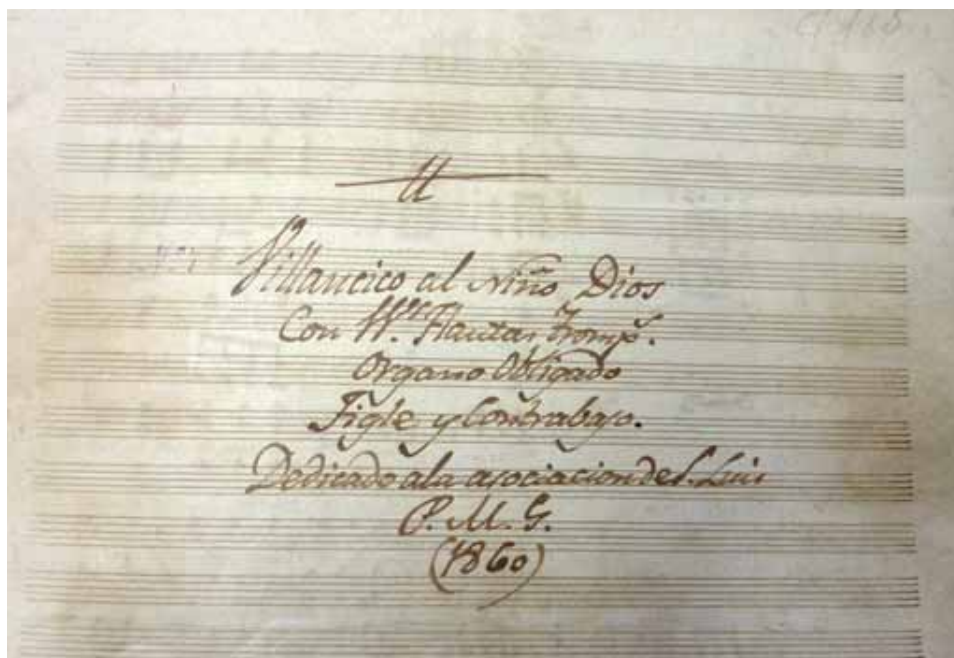 Villancico al Niño Dios
Con Vs. Flautas, Tromps.
Organo Obligado
Figle y Contrabajo.
Dedicado ala asociacion de S. Luis
P. M. G.
(1860)